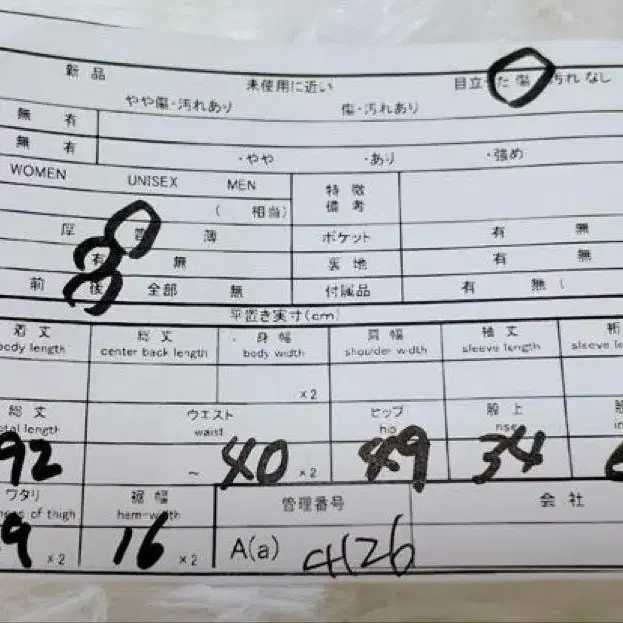 新品 未使用に近い 目立った傷 汚れなし
やや傷・汚れあり 傷・汚れあり
無 有
無 有 ・やや ・あり ・強め
WOMEN UNISEX MEN 特徴
( 相当) 備考
厚 普 薄 ポケット 有 無
有 無 裏地 有 無
前 後 全部 無 付属品 有 無 (
平置き実寸(cm)
着丈 総丈 身幅 肩幅 袖丈 裄
body length center back length body width shoulder width sleeve length sleeve le
×2
総丈 ウエスト ヒップ 股上 股
total length waist hip rise in
92 ~ 40 ×2 49 34
ワタリ 裾幅 管理番号 会社
ness of thigh hem-width
9 ×2 16 ×2 A(a) 4126